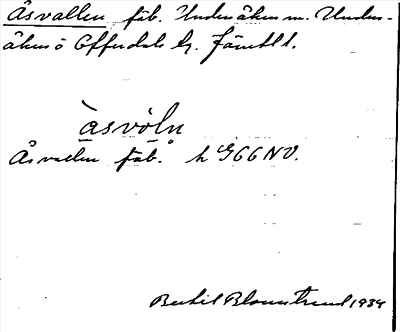 Åsvallen fäb. Undersåkers sn. Unders-
åkers o Offerdals tg. Jämtl l.
àsvöln
Åsvallen fäb. h GGGNV.
Bertil Blomstrand 1934